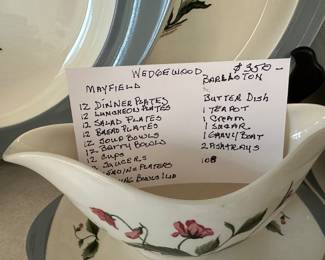 WEDGEWOOD $350-
MAYFIELD BARLASTON
12 DINNER PLATES
12 LUNCHEON PLATES
12 SALAD PLATES
12 BREAD PLATES
12 SOUP BOWLS
12 BERRY BOWLS
12 CUPS
SAUCERS
BUTTER DISH
1 TEAPOT
1 CREAM
1 SUGAR
1 GRAVY/BOAT
2 ASHTRAYS
108